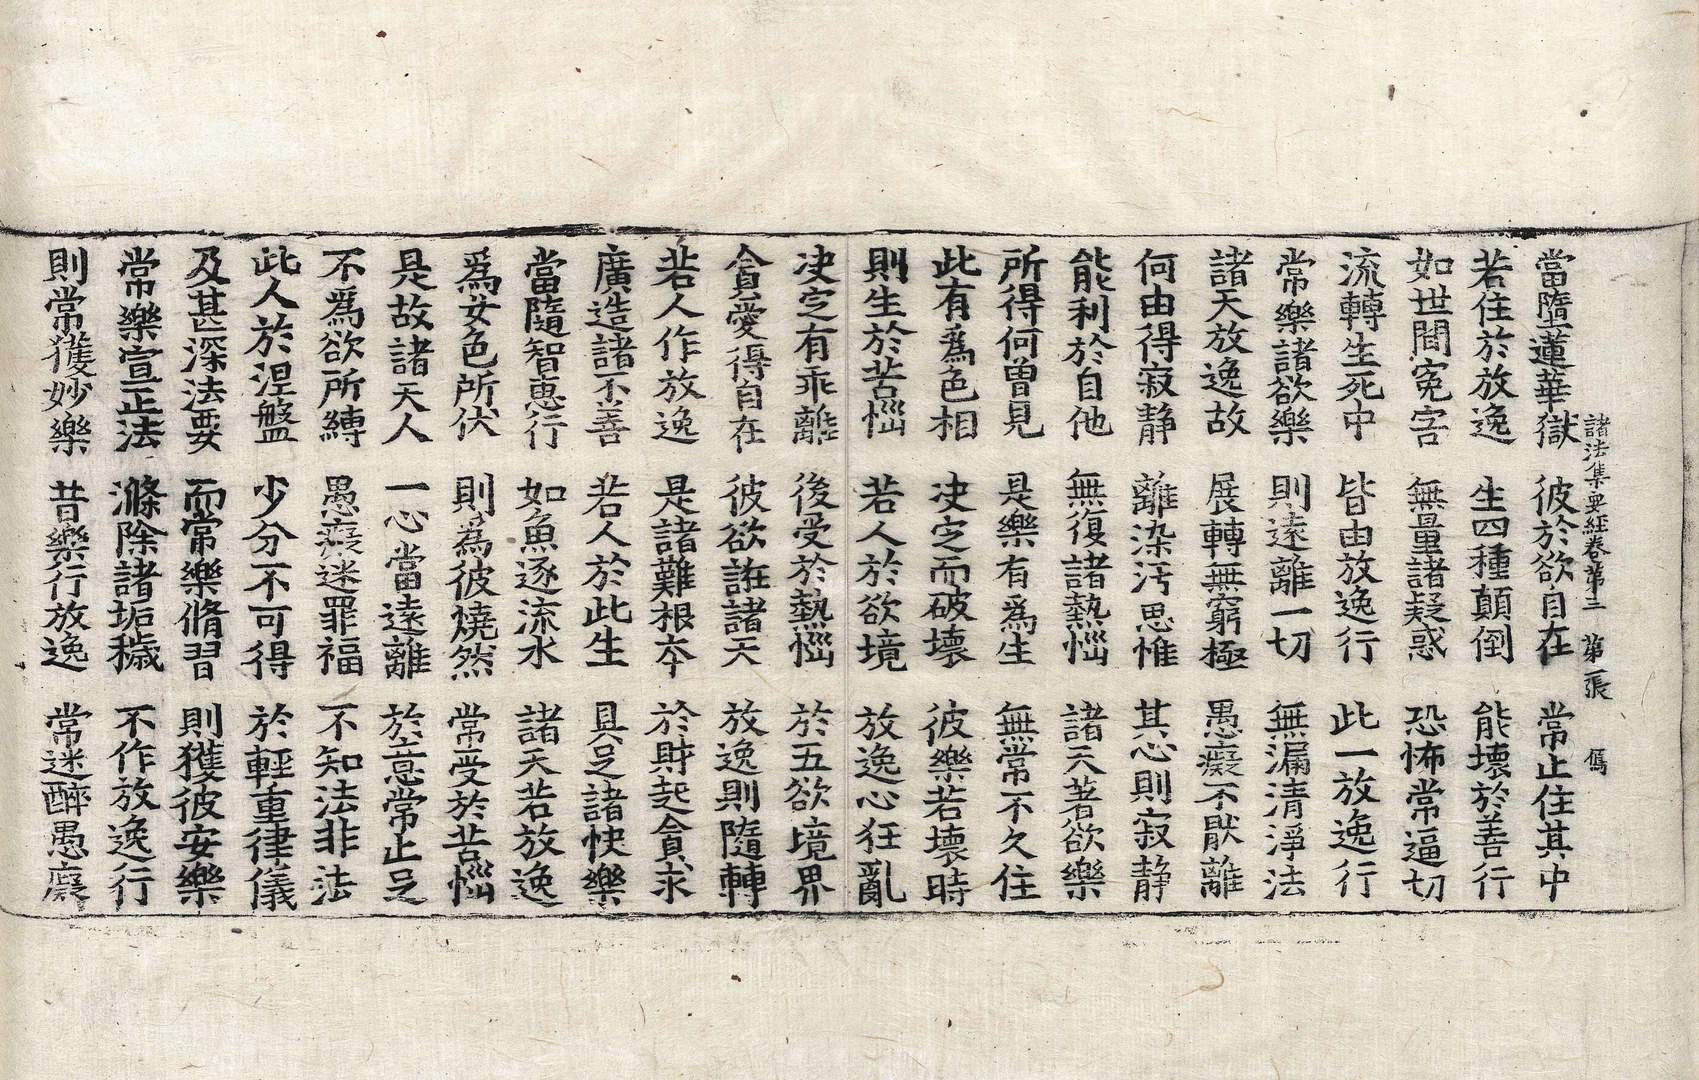 諸法集要經卷第三 第二張 傿
當墮蓮華獄 彼於欲自在 常止住其中
若住於放逸 生四種顛倒 能壞於善行
如世間寃害 無量諸疑惑 恐怖常逼切
流轉生死中 皆由放逸行 此一放逸行
常樂諸欲樂 則遠離一切 無漏清淨法
諸天放逸故 展轉無窮極 愚癡不猒離
何由得寂靜 離染汚思惟 其心則寂靜
能利於自他 無復諸熱惱 諸天著欲樂
所得何曾見 是樂有爲生 無常不久住
此有爲色相 决定而破壞 彼樂若壞時
則生於苦惱 若人於欲境 放逸心狂亂
决定有乖離 後受於熱惱 於五欲境界
貪愛得自在 彼欲誑諸天 放逸則隨轉
若人作放逸 是諸難根本 於財起貪求
廣造諸不善 若人於此生 具足諸快樂
當隨智惠行 如魚逐流水 諸天若放逸
爲女色所伏 則爲彼燒然 常受於苦惱
是故諸天人 一心當遠離 於意常止足
不爲欲所縛 愚癡迷罪福 不知法非法
此人於涅盤 少分不可得 於輕重律儀
及甚深法要 而常樂脩習 則獲彼安樂
常樂宣正法 滌除諸垢穢 不作放逸行
則常獲妙樂 昔樂行放逸 常迷醉愚癡